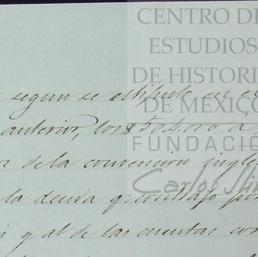 CENTRO DE
ESTUDIOS
DE HISTORI
DE MÉXICO
FUNDACIÓ
Carlos Sli
segun se estipule en
anterior, los
de la convencion ingle
la deuda q. contrajo por
y al de las cuentas con